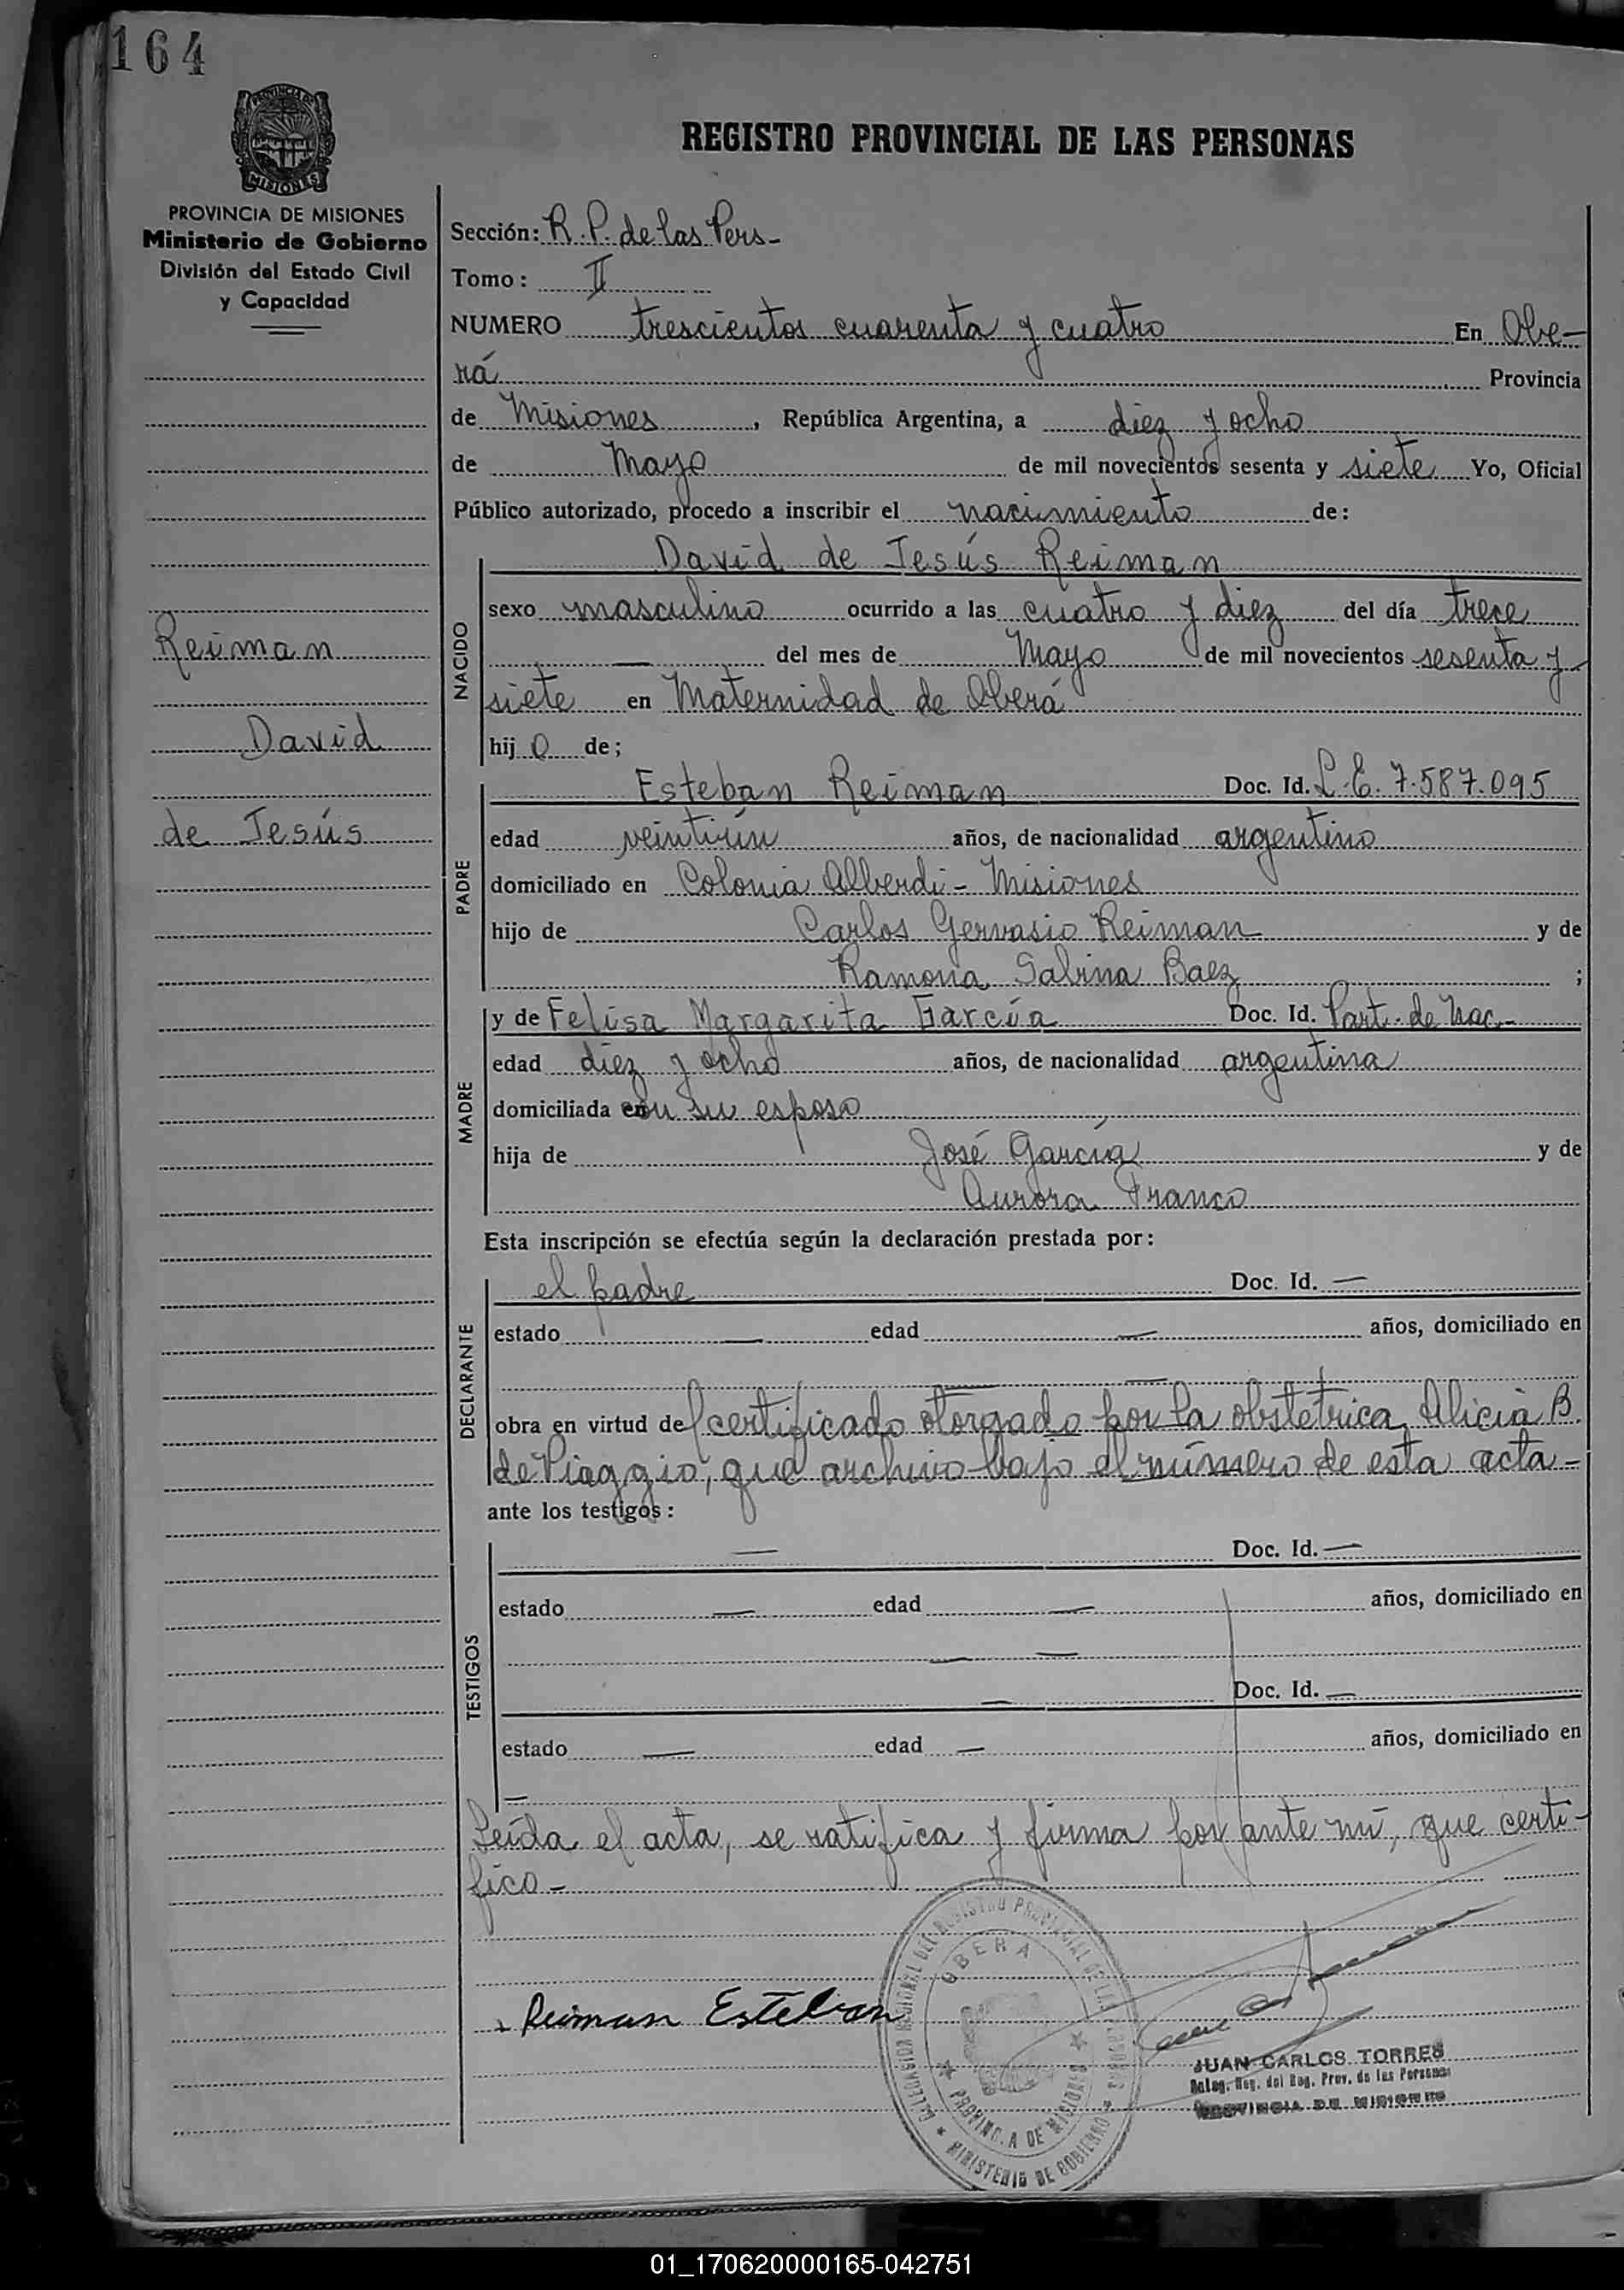 164
PROVINCIA DE MISIONES
PROVINCIA DE MISIONES
Ministerio de Gobierno
División del Estado Civil
y Capacidad
Reiman
David
de Jesús
REGISTRO PROVINCIAL DE LAS PERSONAS
Sección: R.P. de las Pers-
Tomo: II
NUMERO trescientos cuarenta y cuatro En Obe-
rá Provincia
de Misiones, República Argentina, a diez y ocho
de Mayo de mil novecientos sesenta y siete Yo, Oficial
Público autorizado, procedo a inscribir el nacimiento de:
NACIDO
David de Jesús Reiman
sexo masculino ocurrido a las cuatro y diez del día trece
— del mes de Mayo de mil novecientos sesenta y
siete en Maternidad de Oberá
hij o de;
PADRE
Esteban Reiman Doc. Id. L.E. 7.587.095
edad veintiún años, de nacionalidad argentino
domiciliado en Colonia Alberdi - Misiones
hijo de Carlos Gervasio Reiman y de
Ramona Sabina Baez ;
MADRE
y de Felisa Margarita García Doc. Id. Part. de Nac.-
edad diez y ocho años, de nacionalidad argentina
domiciliada con su esposo
hija de José García y de
Aurora Franco
Esta inscripción se efectúa según la declaración prestada por:
DECLARANTE
el padre Doc. Id. —
estado — edad — años, domiciliado en
— —
obra en virtud del certificado otorgado por la obstetrica Alicia B.
de Piaggio, que archivo bajo el número de esta acta-
ante los testigos:
TESTIGOS
— Doc. Id. —
estado — edad — años, domiciliado en
— —
— Doc. Id. —
estado — edad — años, domiciliado en
—
Leída el acta, se ratifica y firma por ante mí, que certi-
fico-
Reiman Esteban
DELEGACION REGIONAL DEL REGISTRO PROVINCIAL DE LAS PERSONAS
OBERA
PROVINCIA DE MISIONES
MINISTERIO DE GOBIERNO
JUAN CARLOS TORRES
Deleg. Reg. del Reg. Prov. de las Personas
PROVINCIA DE MISIONES
01_170620000165-042751